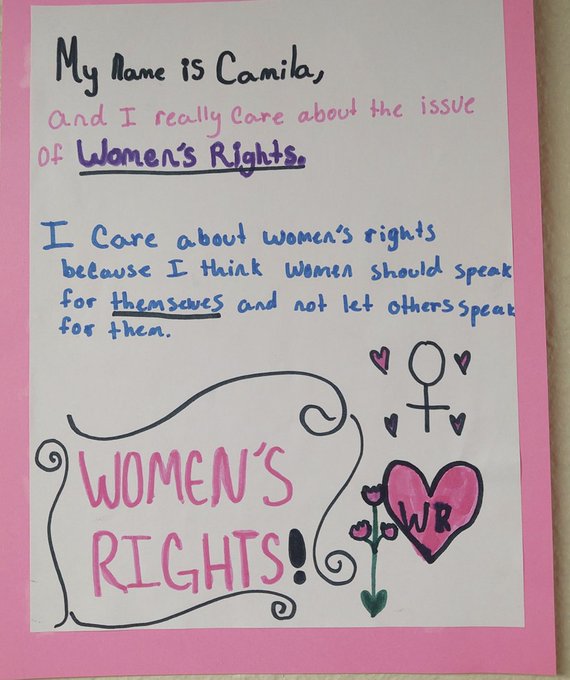 My Name is Camila,
and I really care about the issue
of Women's Rights.
I Care about women's rights
because I think women should speak
for themselves and not let others speak
for them.
WOMEN'S
RIGHTS!
WR